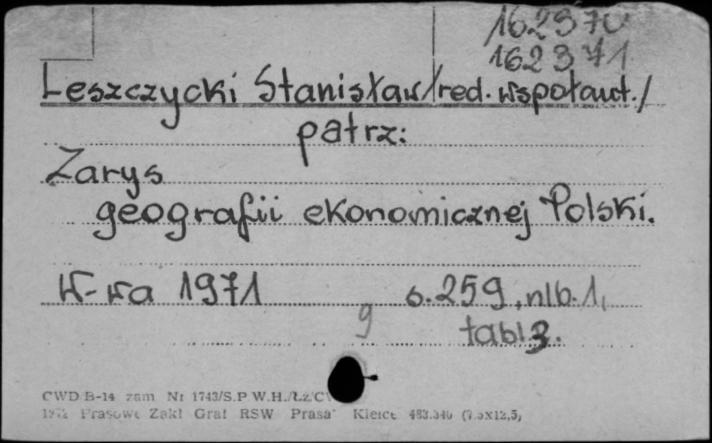 162370
162371
Leszczycki Stanisław /red. współaut./
patrz:
Zarys
geografii ekonomicznej Polski.
W-wa 1971 s. 259, nlb. 1,
9 tabl. 3.
CWD B-14 zam Nr 1743/S.P W.H./Łż/
Prasowe Zakł Graf RSW "Prasa" Kielce